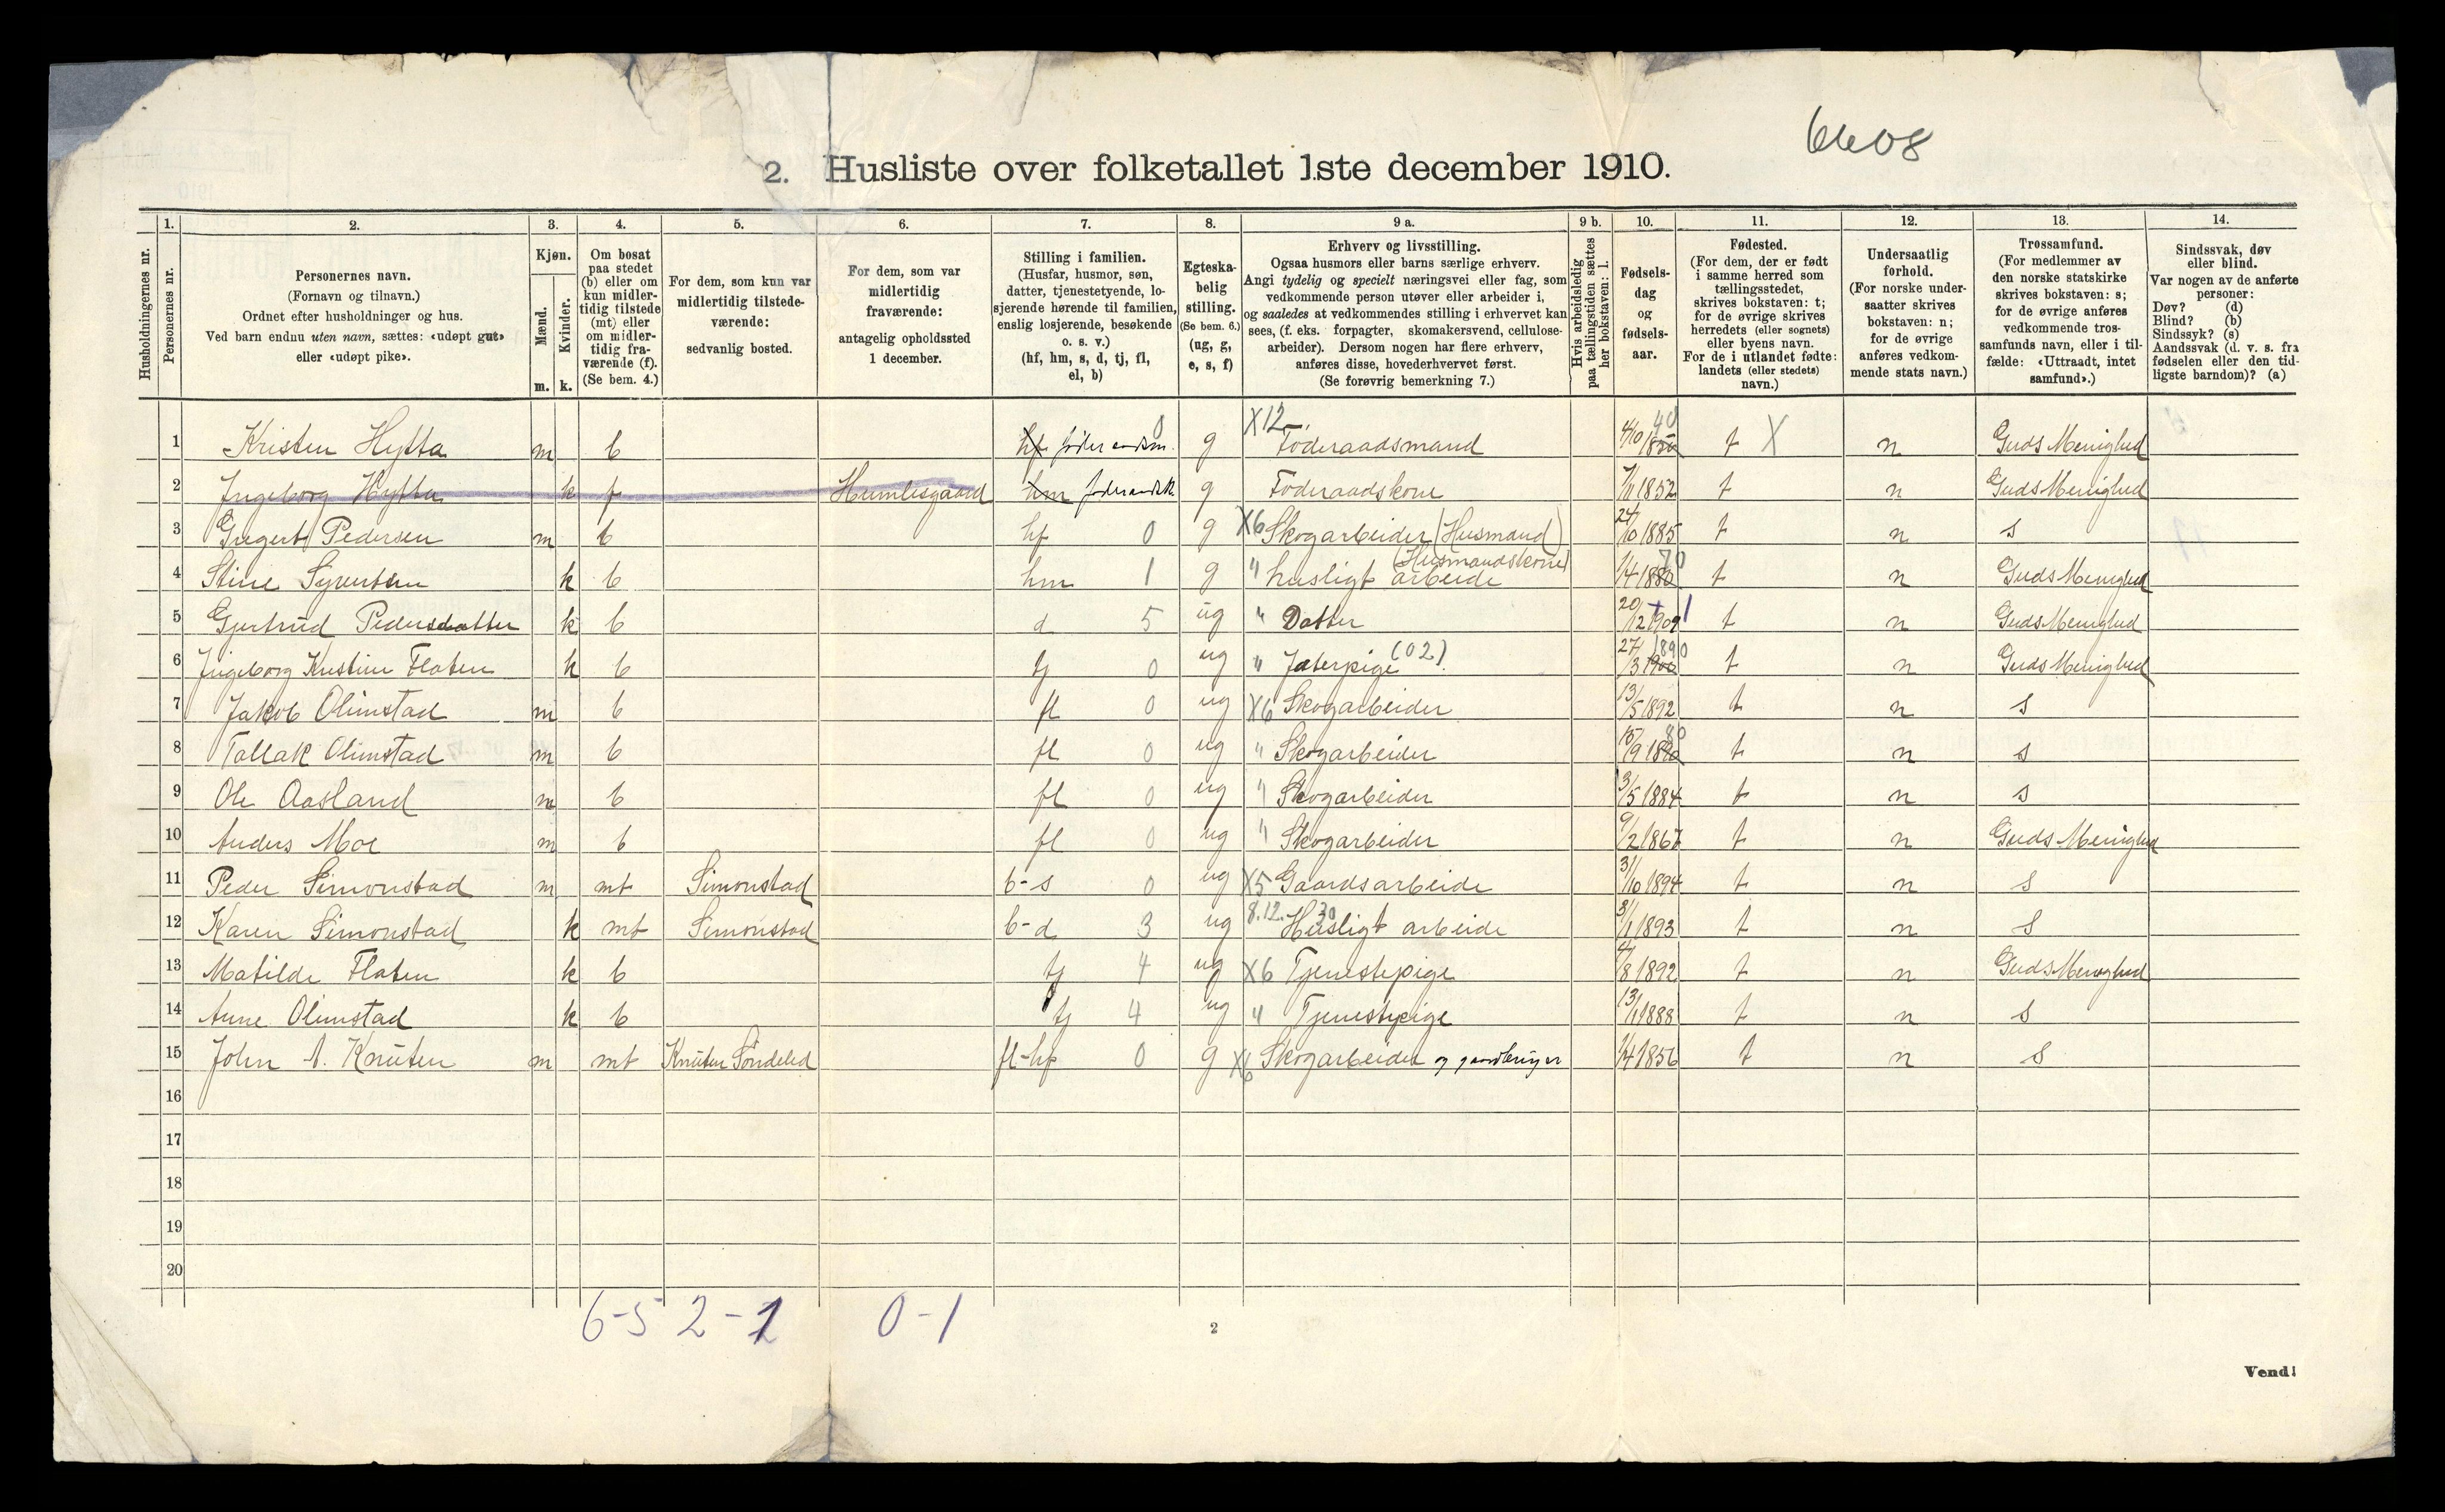 6608
2. Husliste over folketallet 1ste december 1910.
1. 2. 3. 4. 5. 6. 7. 8. 9 a. 9 b. 10. 11. 12. 13. 14.
Husholdningernes nr.
Personernes nr.
Personernes navn.
(Fornavn og tilnavn.)
Ordnet efter husholdninger og hus.
Ved barn endnu uten navn, sættes: «udøpt gut»
eller «udøpt pike».
Kjøn.
Mænd.
m.
Kvinder.
k.
Om bosat
paa stedet
(b) eller om
kun midler-
tidig tilstede
(mt) eller
om midler-
tidig fra-
værende (f).
(Se bem. 4.)
For dem, som kun var
midlertidig tilstede-
værende:
sedvanlig bosted.
For dem, som var
midlertidig
fraværende:
antagelig opholdssted
1 december.
Stilling i familien.
(Husfar, husmor, søn,
datter, tjenestetyende, lo-
sjerende hørende til familien,
enslig losjerende, besøkende
o. s. v.)
(hf, hm, s, d, tj, fl,
el, b)
Egteska-
belig
stilling.
(Se bem. 6.)
(ug, g,
e, s, f)
Erhverv og livsstilling.
Ogsaa husmors eller barns særlige erhverv.
Angi tydelig og specielt næringsvei eller fag, som
vedkommende person utøver eller arbeider i,
og saaledes at vedkommendes stilling i erhvervet kan
sees, (f. eks. forpagter, skomakersvend, cellulose-
arbeider). Dersom nogen har flere erhverv,
anføres disse, hovederhvervet først.
(Se forøvrig bemerkning 7.)
Hvis arbeidsledig
paa tællingstiden sættes
her bokstaven: l.
Fødsels-
dag
og
fødsels-
aar.
Fødested.
(For dem, der er født
i samme herred som
tællingsstedet,
skrives bokstaven: t;
for de øvrige skrives
herredets (eller sognets)
eller byens navn.
For de i utlandet fødte:
landets (eller stedets)
navn.)
Undersaatlig
forhold.
(For norske under-
saatter skrives
bokstaven: n;
for de øvrige
anføres vedkom-
mende stats navn.)
Trossamfund.
(For medlemmer av
den norske statskirke
skrives bokstav: s;
for de øvrige anføres
vedkommende tros-
samfunds navn, eller i til-
fælde: «Uttraadt, intet
samfund».)
Sindssvak, døv
eller blind.
Var nogen av de anførte
personer:
Døv? (d)
Blind? (b)
Sindssyk? (s)
Aandssvak (d. v. s. fra
fødselen eller den tid-
ligste barndom)? (a)
1 Kristen Hytta m b hf føderaadsm. 0 g X12 Föderaadsmand 4/10 1850 40 t X n Guds Menighed
2 Ingeborg Hytta k f Humlesgaard hm føderaadsk. g Föderaadskone 7/11 1852 t n Guds Menighed
3 Gregert Pedersen m b hf 0 g X6 Skogarbeider (Husmand) 24/10 1885 t n s
4 Stine Syvertsen k b hm 1 g " husligt arbeide (Husmandskone) 1/4 1880 70 t n Guds Menighed
5 Gjertrud Pedersdatter k b d 5 ug " Datter 20/12 1909 1 t n Guds Menighed
6 Ingeborg Kristine Flaten k b tj 0 ug " Jæterpige (02) 27/3 1900 1890 t n Guds Menighed
7 Jakob Olimstad m b fl 0 ug X6 Skogarbeider 13/5 1892 t n s
8 Tallak Olimstad m b fl 0 ug " Skogarbeider 15/9 1890 80 t n s
9 Ole Aasland m b fl 0 ug " Skogarbeider 3/5 1884 t n s
10 Anders Moe m b fl 0 ug " Skogarbeider 9/2 1867 t n Guds Menighed
11 Peder Simonstad m mt Simonstad b-s 0 ug X5 Gaardsarbeide 31/10 1894 t n s
12 Karen Simonstad k mt Simonstad b-d 3 ug 8.12. 30 Husligt arbeide 31/1 1893 t n s
13 Matilde Flaten k b tj 4 ug X6 Tjenestepige 4/8 1892 t n Guds Menighed
14 Anne Olimstad k b tj 4 ug " Tjenestepige 13/1 1888 t n s
15 John A. Knuten m mt Knuten Söndeled fl-hf 0 g X6 Skogarbeider og gaardbruger 1/4 1856 t n s
16
17
18
19
20
6-5 2-1 0-1
2
Vend!